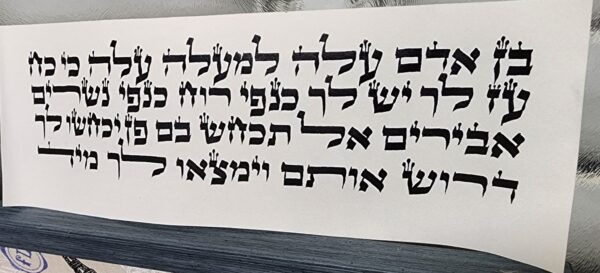 בן אדם עלה למעלה עלה כי כח
עז לך יש לך כנפי רוח כנפי נשרים
אבירים אל תכחש בם פן יכחשו לך
דרוש אותם וימצאו לך מיד